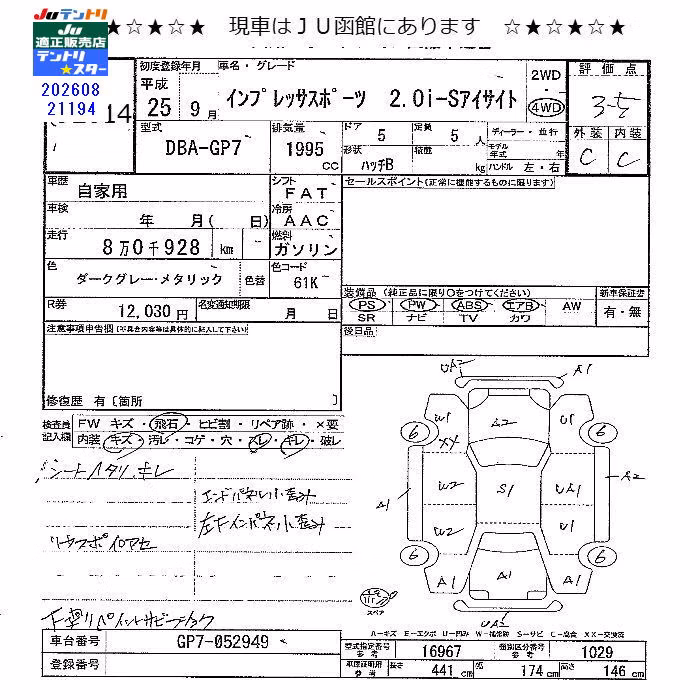 ★☆★☆★ 現車はＪＵ函館にあります ☆★☆★☆★
JUテントリ
JU
適正販売店
テントリ
★スター
202608
21194
14
初度登録年月 車名・グレード
平成
25 9月
インプレッサスポーツ 2.0i-Sアイサイト
2WD
4WD
評価点
3-5
外装 内装
C C
型式
DBA-GP7
排気量
1995
CC
ドア 5
定員 5人
形状 ハッチB
積載 kg
ディーラー・並行
モデル年式 年
ハンドル 左・右
車歴 自家用
シフト FAT
車検 年 月( 日)
冷房 AAC
走行 8万0千928 km
燃料 ガソリン
色 ダークグレー・メタリック 色替
色コード 61K
R券 12,030円
名変通知期限 月 日
セールスポイント(正常に機能するものに限ります)
装備品 (純正品に限り○をつけてください)
PS PW ABS エアB AW
SR ナビ TV カワ
新車保証書
有・無
後日品
注意事項申告欄(不具合内容等は具体的に記入して下さい)
修復歴 有〔箇所 〕
検査員記入欄
FW キズ・飛石・ヒビ割・リペア跡・×要
内装 キズ・汚レ・コゲ・穴・スレ・キレ・破レ
シートヘタリ、キレ
エンドパネル小歪み
左Fインパネ小歪み
リヤスポイロアセ
下廻りペイントサビ
UA2 A1
W1 A2 U1
6 6
XX
W2 S1 UA1
A1 A2
W2 U1
6 6
A1 A1 A1
スペア
UA2
A-キズ E-エクボ U-凹み W-補修跡 S-サビ C-腐食 XX-交換済
車台番号 GP7-052949
登録番号
型式指定番号 参考 16967
類別区分番号 参考 1029
車庫証明用 参考 長さ 441 cm 幅 174 cm 高さ 146 cm